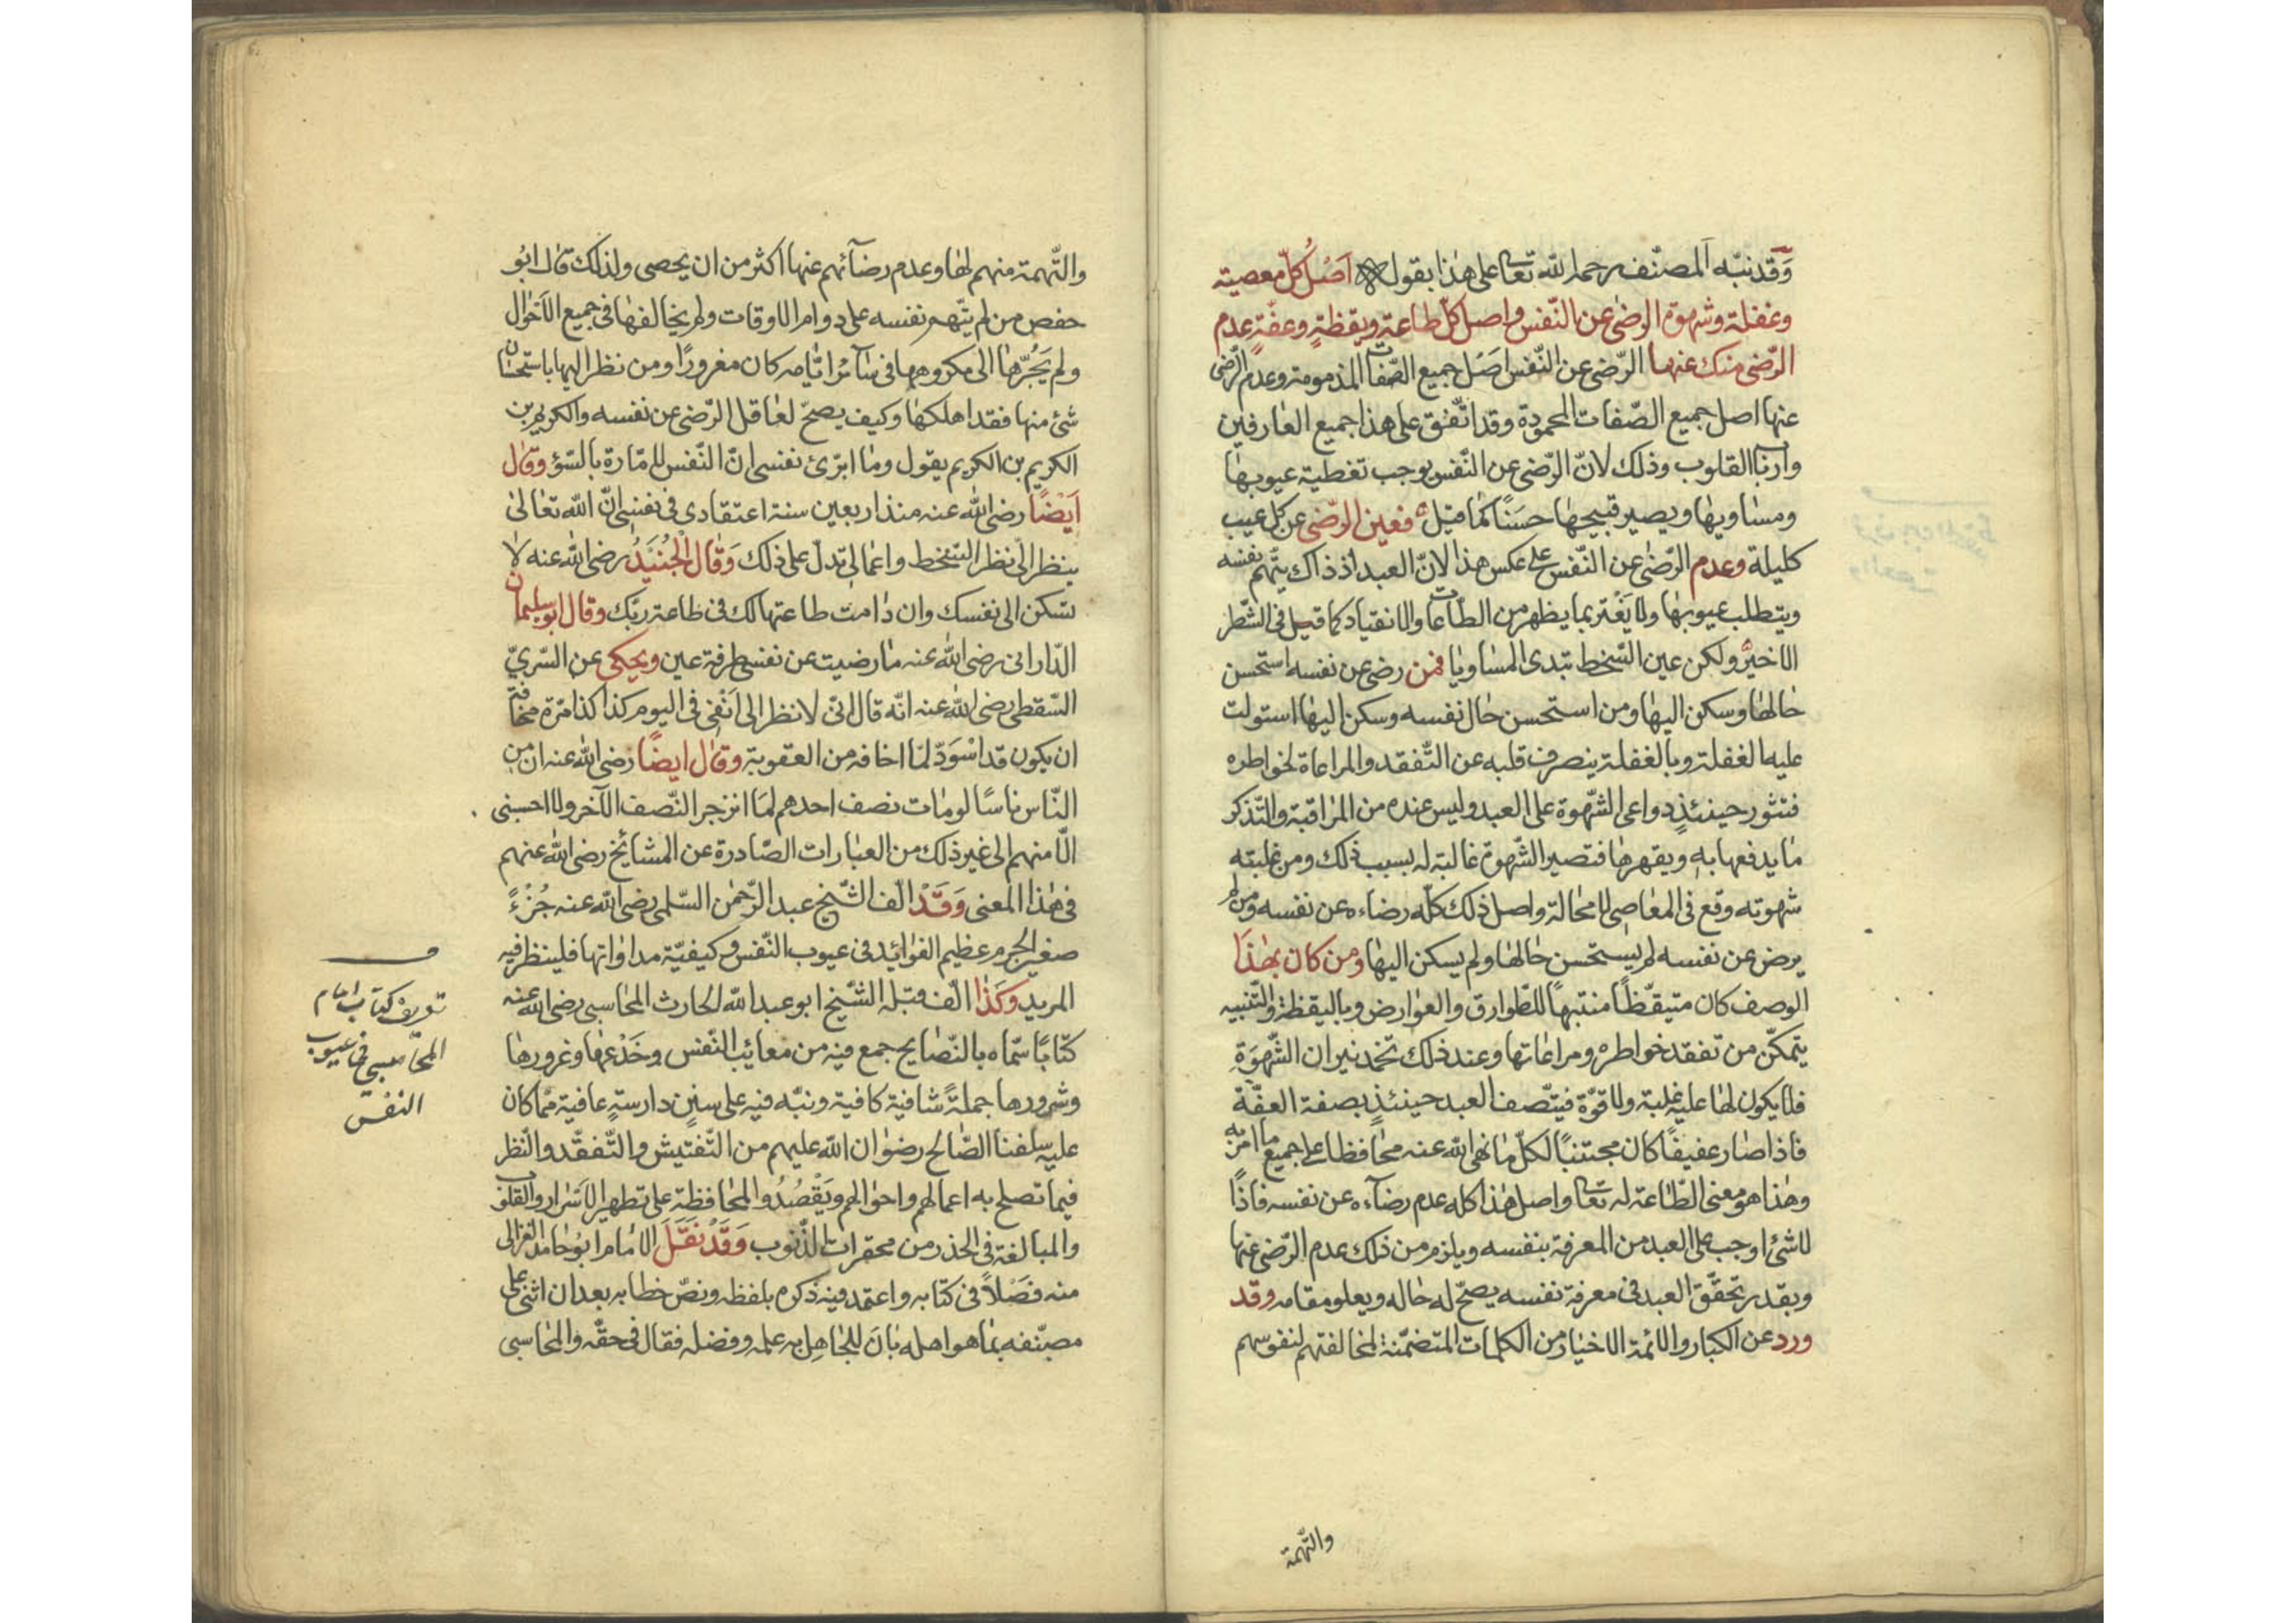 وقد نبّه المصنّف رحمه الله تعا على هذا بقوله اصل كلّ معصية
وغفلة وشهوة الرضى عن النّفس واصل كلّ طاعة ويقظةٍ وعفّةٍ عدم
الرّضى منك عنها الرّضى عن النّفس اصل جميع الصّفات المذمومة وعدم الرّضى
عنها اصل جميع الصّفات المحمودة وقد اتّفق على هذا جميع العارفين
وارباب القلوب وذلك لانّ الرّضى عن النّفس يوجب تغطية عيوبها
ومساويها ويصير قبيحها حسنًا كما قيل فعين الرّضى عن كل عيب
كليلة وعدم الرّضى عن النّفس على عكس هذا لانّ العبد اذ ذاك يتّهم نفسه
ويتطلب عيوبها ولا يغترّ بما يظهر من الطّاعات والانقياد كما قيل فى الشّطر
الاخير ولكن عين السّخط تبدى المساويا فمن رضى عن نفسه استحسن
حالها وسكن اليها ومن استحسن حال نفسه وسكن اليها استولت
عليه الغفلة وبالغفلة ينصرف قلبه عن التّفقد والمراعاة لخواطره
فتثور حينئذٍ دواعى الشّهوة على العبد وليس عنده من المراقبة والتّذكر
ما يدفعها به ويقهرها فتصير الشّهوة غالبة له بسبب ذلك ومن غلبته
شهوته وقع فى المعاصى لا محالة واصل ذلك كلّه رضاءه عن نفسه ومن لم
يرض عن نفسه لم يستحسن حالها ولم يسكن اليها ومن كان بهذا
الوصف كان متيقّظًا منتبهًا للطّوارق والعوارض وباليقظة والتّنبيه
يتمكّن من تفقد خواطره ومراعاتها وعند ذلك تخمد نيران الشّهوة
فلا يكون لها عليه غلبة ولا قوّة فيتّصف العبد حينئذٍ بصفة العفّة
فاذا صار عفيفًا كان مجتنبًا لكلّ ما نهى الله عنه محافظا على جميع ما امر به
وهذا هو معنى الطّاعة له تعا واصل هذا كله عدم رضآءه عن نفسه فاذًا
لا شئ اوجب على العبد من المعرفة بنفسه ويلزم من ذلك عدم الرّضى عنها
وبقدر تحقّق العبد فى معرفة نفسه يصحّ له حاله ويعلو مقامه وقد
ورد عن الكبار والائمة الاخيار من الكلمات المتضمّنة لمخالفتهم لنفوسهم
والتّهمة
والتّهمة منهم لها وعدم رضآئهم عنها اكثر من ان يحصى ولذلك قال ابو
حفص من لم يتّهم نفسه على دوام الاوقات ولم يخالفها فى جميع الاحوال
ولم يجرّها الى مكروهها فى سآئر ايّامه كان مغرورًا ومن نظر اليها باستحسان
شئ منها فقد اهلكها وكيف يصحّ لعاقل الرّضى عن نفسه والكريم بن
الكريم بن الكريم يقول وما ابرّئ نفسى انّ النّفس لامّارة بالسّوٓء وقال
ايضًا رضى الله عنه منذ اربعين سنة اعتقادى فى نفسى انّ الله تعالى
ينظر الىّ نظر السّخط واعمالى تدلّ على ذلك وقال الجُنَيْدُ رضى الله عنه لا
تسكن الى نفسك وان دامت طاعتها لك فى طاعة ربّك وقال ابو سليمان
الدّارانى رضى الله عنه ما رضيت عن نفسى طرفة عين ويحكى عن السّرىّ
السّقطى رضى الله عنه انّه قال انّى لانظر الى انفى فى اليوم كذا كذا مرّة مخافة
ان يكون قد اسْوَدّ لما اخافه من العقوبة وقال ايضًا رضى الله عنه ان من
النّاس ناسًا لو مات نصف احدهم لما انزجر النّصف الآخر ولا احسبنى
الّا منهم الى غير ذلك من العبارات الصّادرة عن المشائخ رضى الله عنهم
فى هذا المعنى وَقَدْ الّف الشّيخ عبد الرّحمن السّلمى رضى الله عنه جُزْءً
صغير الجرم عظيم الفوائد فى عيوب النّفس وكيفيّة مداواتها فلينظر فيه
المريد وكذا الّف قبله الشّيخ ابو عبد الله الحارث المحاسبى رضى الله عنه
كتابًا سمّاه بالنّصايح جمع فيه من معائب النّفس وخَدْعها وغرورها
وشرورها جملةً شافية كافية ونبّه فيه على سنن دارسةٍ عافية ممّا كان
عليه سلفنا الصّالح رضوان الله عليهم من التّفتيش والتّفقّد والنّظر
فيما تصلح به اعمالهم واحوالهم ويَقْصُدُوا المحافظة على تطهير الاسْرار والقلوب
والمبالغة فى الحذر من محقرات الذّنوب وَقَدْ نَقَلَ الامام ابو حامد الغزالى
منه فصْلًا فى كتابه واعتمد فيه ذكره بلفظه ونصّ خطابه بعد ان اثنى على
مصنّفه بما هو اهله بانَ للجاهل به علمه وفضله فقال فى حقّه والمحاسبى
تعريف كتاب امام
المحاسبى فى عيوب
النفس